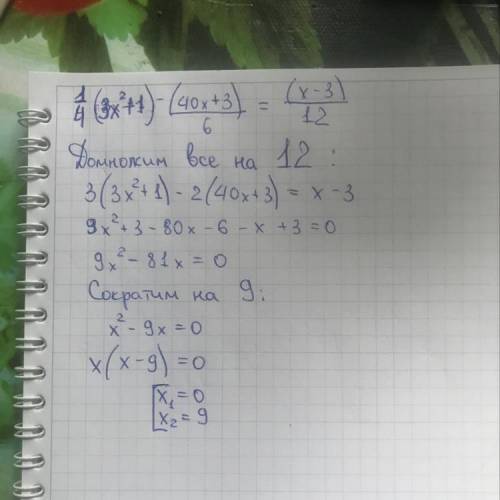 1/4 (3x²+1) - (40x+3)/6 = (x-3)/12
Домножим все на 12:
3(3x²+1) - 2(40x+3) = x - 3
9x² + 3 - 80x - 6 - x + 3 = 0
9x² - 81x = 0
Сократим на 9:
x² - 9x = 0
x(x-9) = 0
[x₁ = 0
x₂ = 9